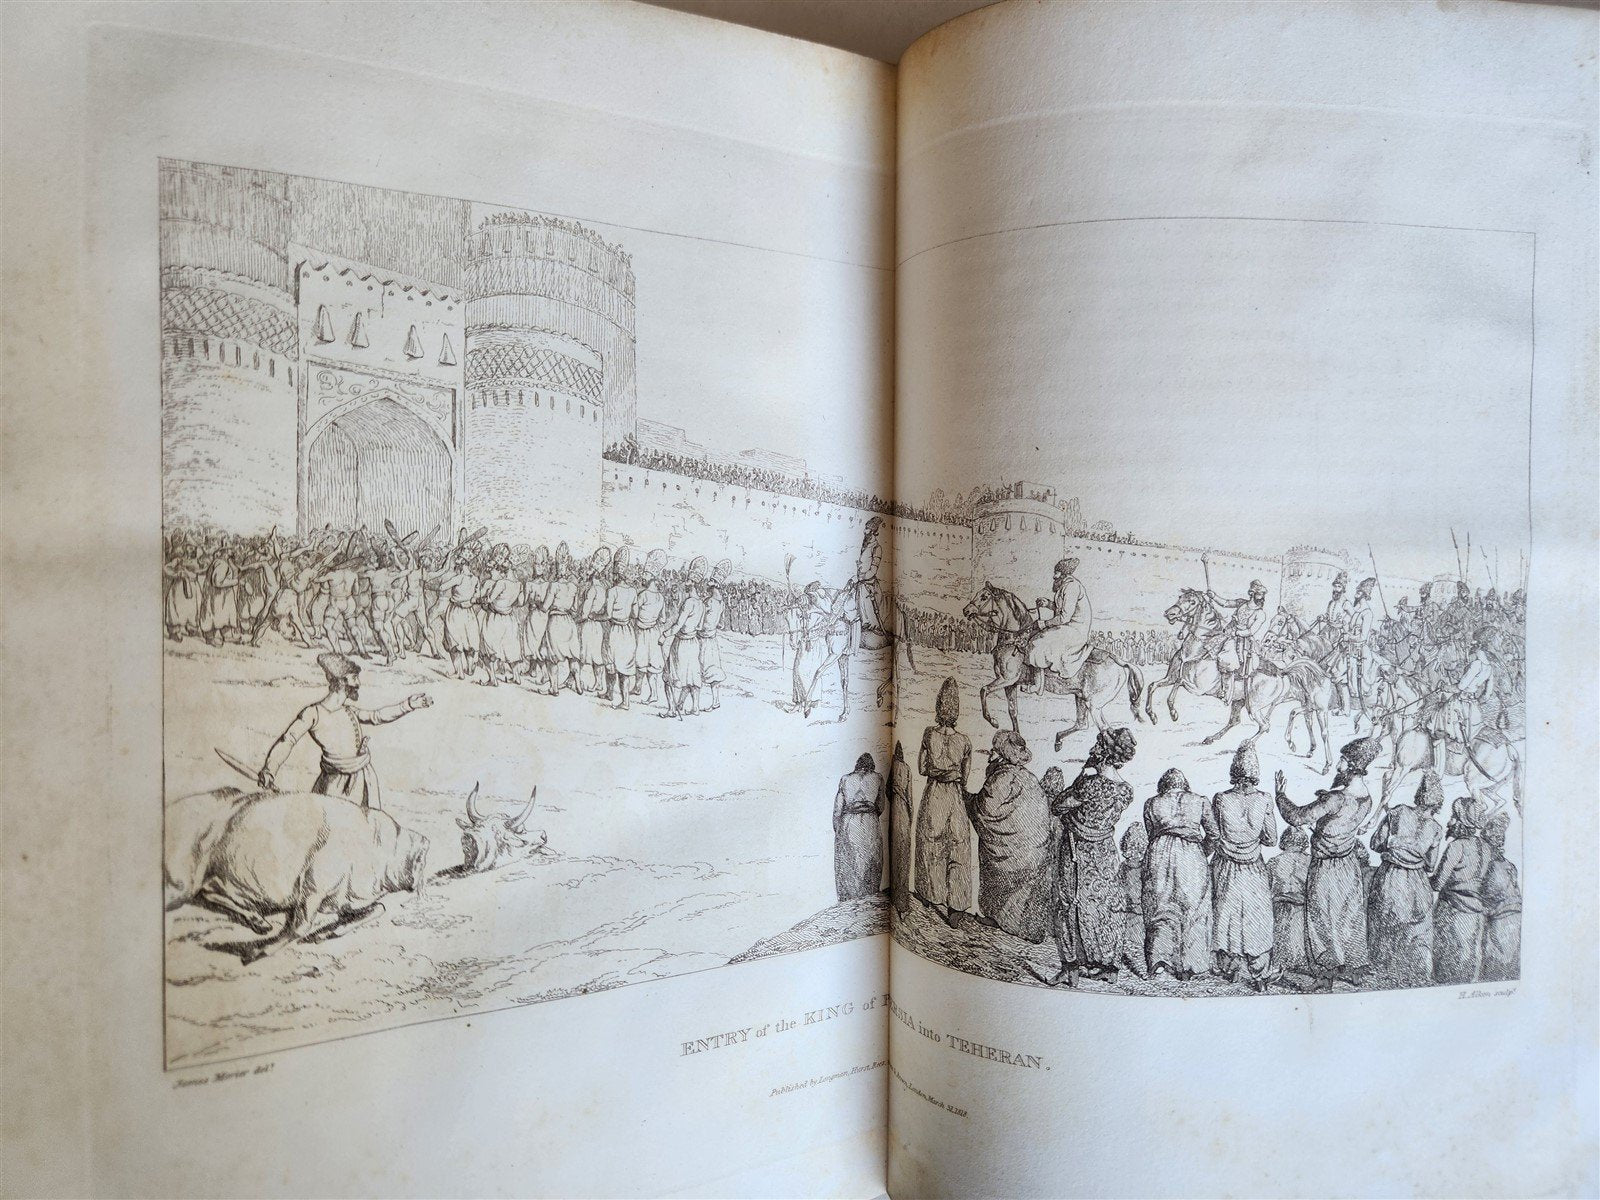 James Morier del.t
H. Alken sculp.t
ENTRY of the KING of PERSIA into TEHERAN.
Published by Longman, Hurst, Rees, London, March 31, 1818.